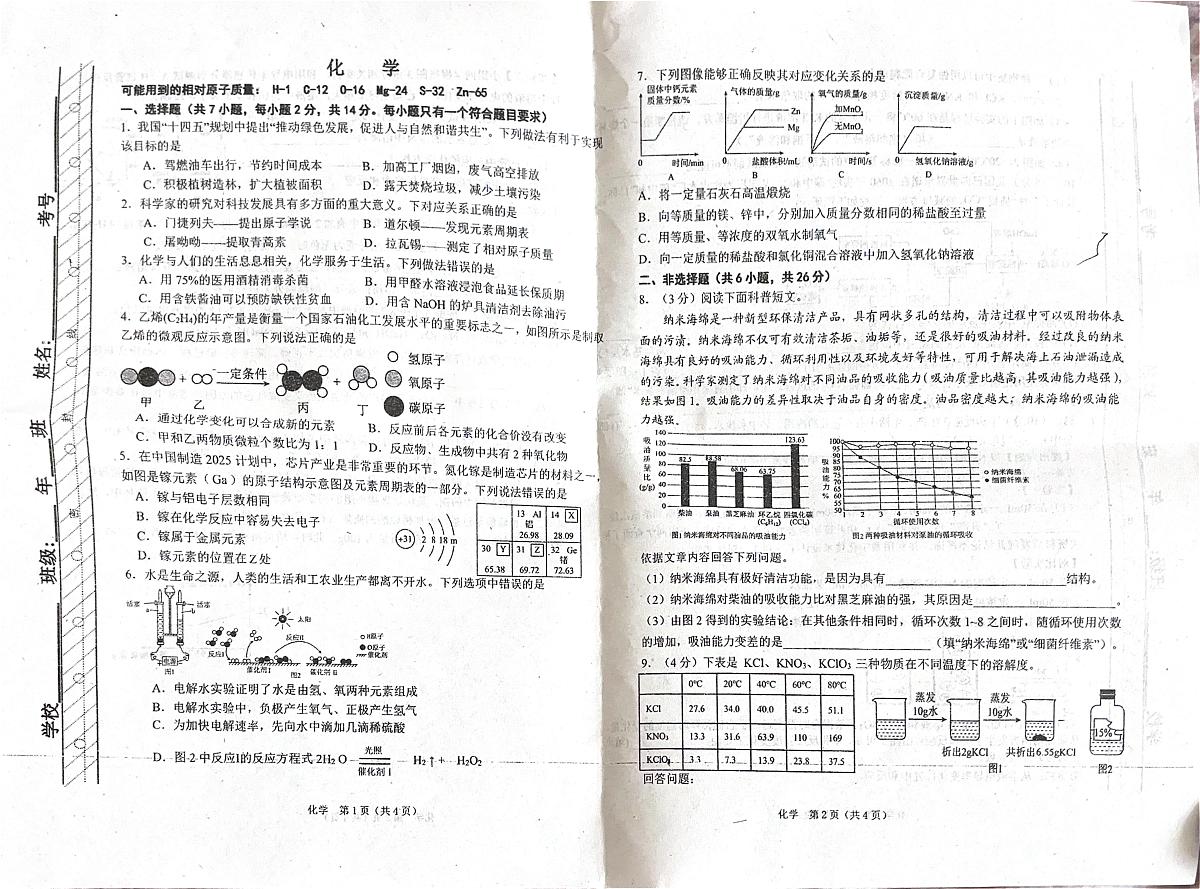 学校 班级: 年 班 姓名: 考号
密 封 线
化 学
可能用到的相对原子质量: H-1 C-12 O-16 Mg-24 S-32 Zn-65
一、选择题(共7小题,每小题2分,共14分。每小题只有一个符合题目要求)
1. 我国“十四五”规划中提出“推动绿色发展,促进人与自然和谐共生”。下列做法有利于实现
该目标的是
A. 驾燃油车出行,节约时间成本 B. 加高工厂烟囱,废气高空排放
C. 积极植树造林,扩大植被面积 D. 露天焚烧垃圾,减少土壤污染
2. 科学家的研究对科技发展具有多方面的重大意义。下对应关系正确的是
A. 门捷列夫——提出原子学说 B. 道尔顿——发现元素周期表
C. 屠呦呦——提取青蒿素 D. 拉瓦锡——测定了相对原子质量
3. 化学与人们的生活息息相关,化学服务于生活。下列做法错误的是
A. 用75%的医用酒精消毒杀菌 B. 用甲醛水溶液浸泡食品延长保质期
C. 用含铁酱油可以预防缺铁性贫血 D. 用含NaOH的炉具清洁剂去除油污
4. 乙烯(C₂H₄)的年产量是衡量一个国家石油化工发展水平的重要标志之一,如图所示是制取
乙烯的微观反应示意图。下列说法正确的是
+ 一定条件 +
甲 乙 丙 丁
氢原子
氧原子
碳原子
A. 通过化学变化可以合成新的元素 B. 反应前后各元素的化合价没有改变
C. 甲和乙两物质微粒个数比为1:1 D. 反应物、生成物中共有2种氧化物
5. 在中国制造2025计划中,芯片产业是非常重要的环节。氮化镓是制造芯片的材料之一,
如图是镓元素(Ga)的原子结构示意图及元素周期表的一部分。下列说法错误的是
A. 镓与铝电子层数相同
B. 镓在化学反应中容易失去电子
C. 镓属于金属元素
D. 镓元素的位置在Z处
+31 2 8 18 m
13 Al 14 X
铝
26.98 28.09
30 Y 31 Z 32 Ge
锗
65.38 69.72 72.63
6. 水是生命之源,人类的生活和工农业生产都离不开水。下列选项中错误的是
活塞 活塞
a b
电源
图1
太阳
反应I 反应II
催化剂I 图2 催化剂II
H原子
O原子
催化剂
A. 电解水实验证明了水是由氢、氧两种元素组成
B. 电解水实验中,负极产生氧气、正极产生氢气
C. 为加快电解速率,先向水中滴加几滴稀硫酸
D. 图2中反应I的反应方程式2H₂O 光照 催化剂I H₂↑+ H₂O₂
化学 第1页(共4页)
7. 下列图像能够正确反映其对应变化关系的是
固体中钙元素
质量分数/% 0 时间/min A
气体的质量/g Zn Mg 0 盐酸体积/mL B
氧气的质量/g 加MnO₂ 无MnO₂ 0 时间/s C
沉淀质量/g 0 氢氧化钠溶液/g D
A. 将一定量石灰石高温煅烧
B. 向等质量的镁、锌中,分别加入质量分数相同的稀盐酸至过量
C. 用等质量、等浓度的双氧水制氧气
D. 向一定质量的稀盐酸和氯化铜混合溶液中加入氢氧化钠溶液
二、非选择题(共6小题,共26分)
8. (3分)阅读下面科普短文。
纳米海绵是一种新型环保清洁产品,具有网状多孔的结构,清洁过程中可以吸附物体表
面的污渍。纳米海绵不仅可有效清洁茶垢、油垢等,还是很好的吸油材料。经过改良的纳米
海绵具有良好的吸油能力、循环利用性以及环境友好等特性,可用于解决海上石油泄漏造成
的污染。科学家测定了纳米海绵对不同油品的吸收能力(吸油质量比越高,其吸油能力越强),
结果如图1。吸油能力的差异性取决于油品自身的密度,油品密度越大,纳米海绵的吸油能
力越强。
吸油质量比(g/g)
140 120 100 80 60 40 20 0
82.5 88.58 68.06 63.75 123.63
柴油 泵油 黑芝麻油 环乙烷(C₆H₁₂) 四氯化碳(CCl₄)
图1 纳米海绵对不同油品的吸油能力
吸油能力%
100 95 90 85 80 75 70 65 60 55 50
1 2 3 4 5 6 7 8
循环使用次数
纳米海绵
细菌纤维素
图2 两种吸油材料对泵油的循环吸收
依据文章内容回答下列问题。
(1)纳米海绵具有极好清洁功能,是因为具有 结构。
(2)纳米海绵对柴油的吸收能力比对黑芝麻油的强,其原因是 。
(3)由图2得到的实验结论:在其他条件相同时,循环次数1~8之间时,随循环使用次数
的增加,吸油能力变差的是 (填“纳米海绵”或“细菌纤维素”)。
9. (4分)下表是KCl、KNO₃、KClO₃三种物质在不同温度下的溶解度。
0℃ 20℃ 40℃ 60℃ 80℃
KCl 27.6 34.0 40.0 45.5 51.1
KNO₃ 13.3 31.6 63.9 110 169
KClO₃ 3.3 7.3 13.9 23.8 37.5
蒸发 10g水 蒸发 10g水
析出2gKCl 共析出6.55gKCl
图1
15%
图2
回答问题:
化学 第2页(共4页)